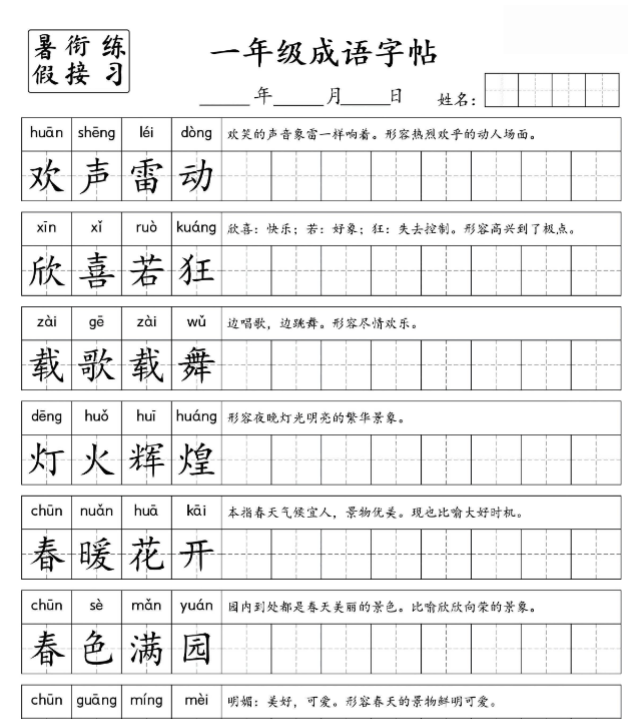 暑衔练
假接习
一年级成语字帖
年 月 日 姓名：
huān shēng léi dòng 欢笑的声音象雷一样响着。形容热烈欢乎的动人场面。
欢声雷动
xīn xǐ ruò kuáng 欣喜：快乐；若：好象；狂：失去控制。形容高兴到了极点。
欣喜若狂
zài gē zài wǔ 边唱歌，边跳舞。形容尽情欢乐。
载歌载舞
dēng huǒ huī huáng 形容夜晚灯光明亮的繁华景象。
灯火辉煌
chūn nuǎn huā kāi 本指春天气候宜人，景物优美。现也比喻大好时机。
春暖花开
chūn sè mǎn yuán 园内到处都是春天美丽的景色。比喻欣欣向荣的景象。
春色满园
chūn guāng míng mèi 明媚：美好，可爱。形容春天的景物鲜明可爱。